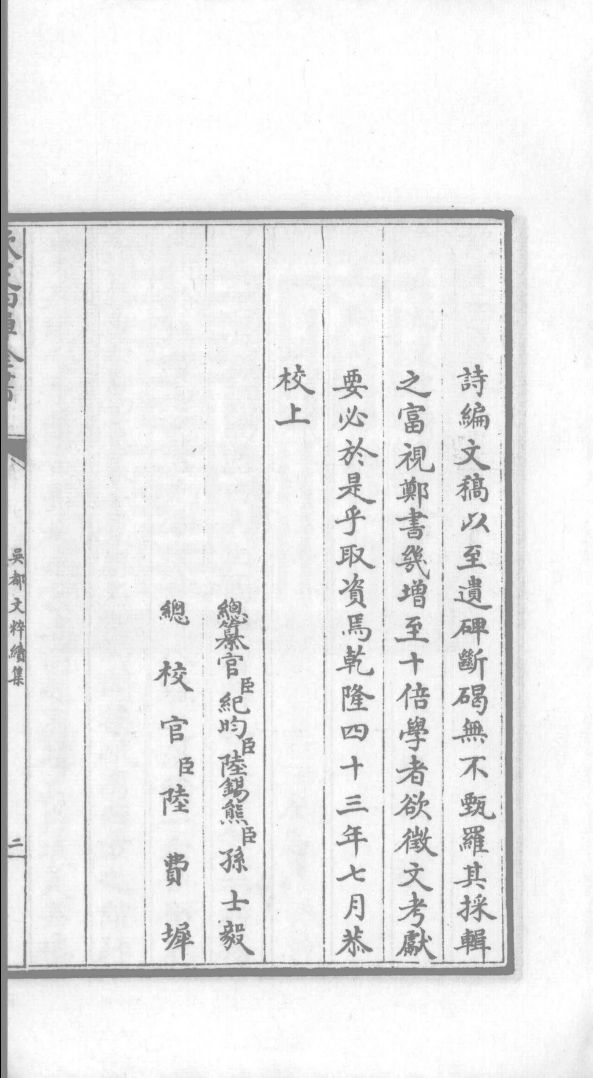 詩編文稿以至遺碑斷碣無不甄羅其採輯
之富視鄭書幾增至十倍學者欲徵文考獻
要必於是乎取資焉乾隆四十三年七月恭
校上
總纂官臣紀昀臣陸錫熊臣孫士毅
總校官臣陸費墀
欽定四庫全書
吳都文粹續集
二